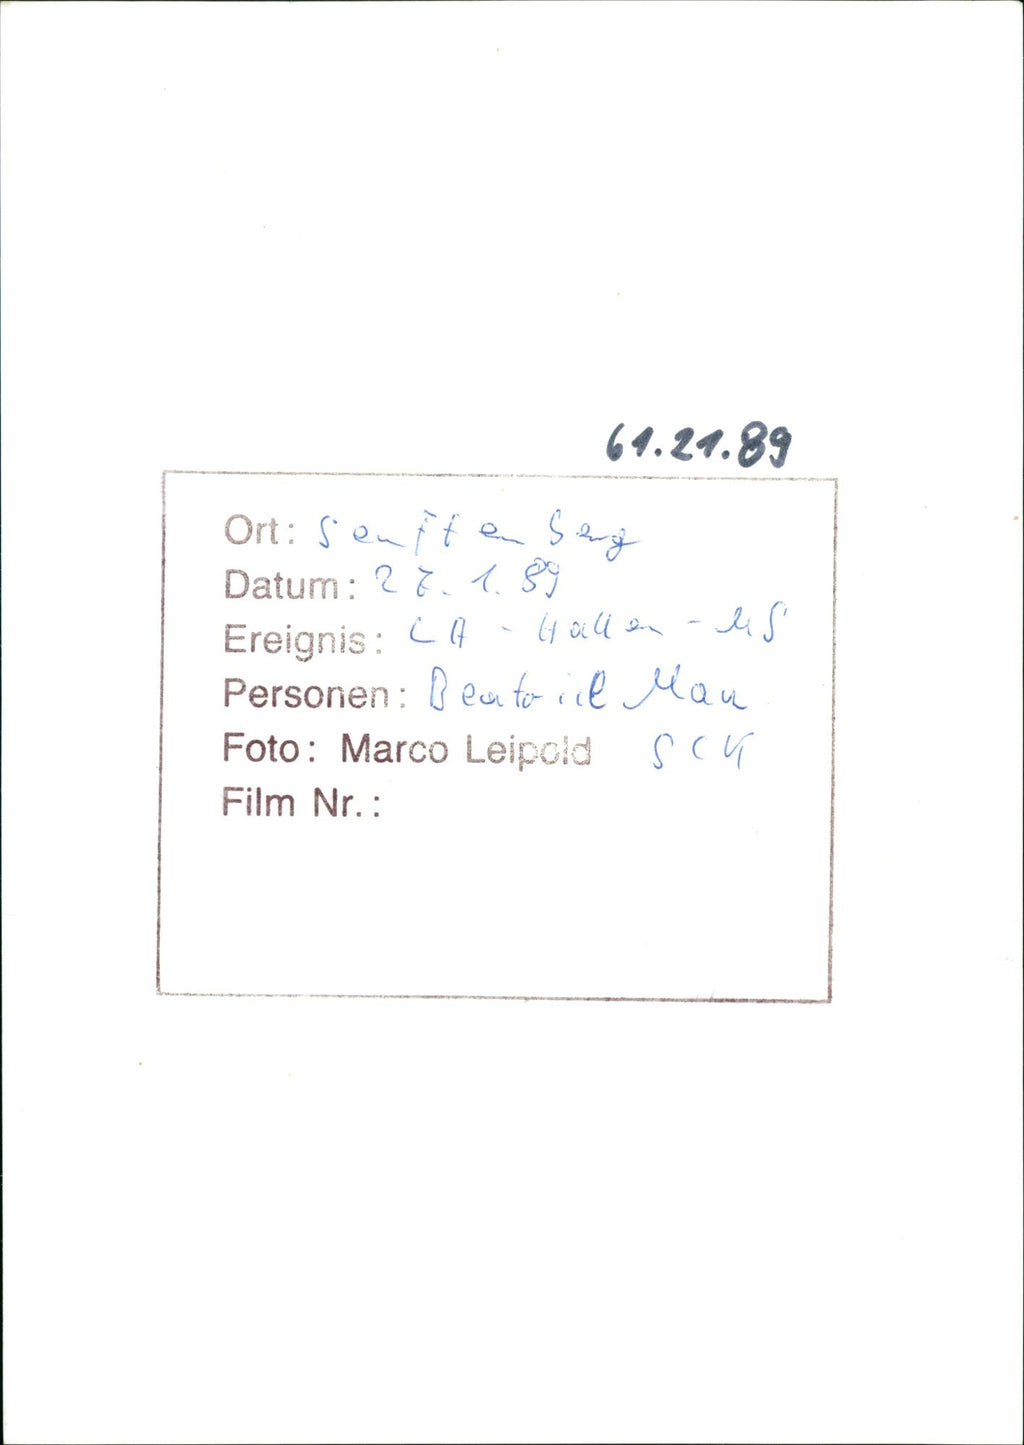 61.21.89
Ort: Senftenberg
Datum: 27.1.89
Ereignis: LA - Hallen - MS
Personen: Mau
Foto: Marco Leipold
Film Nr.: